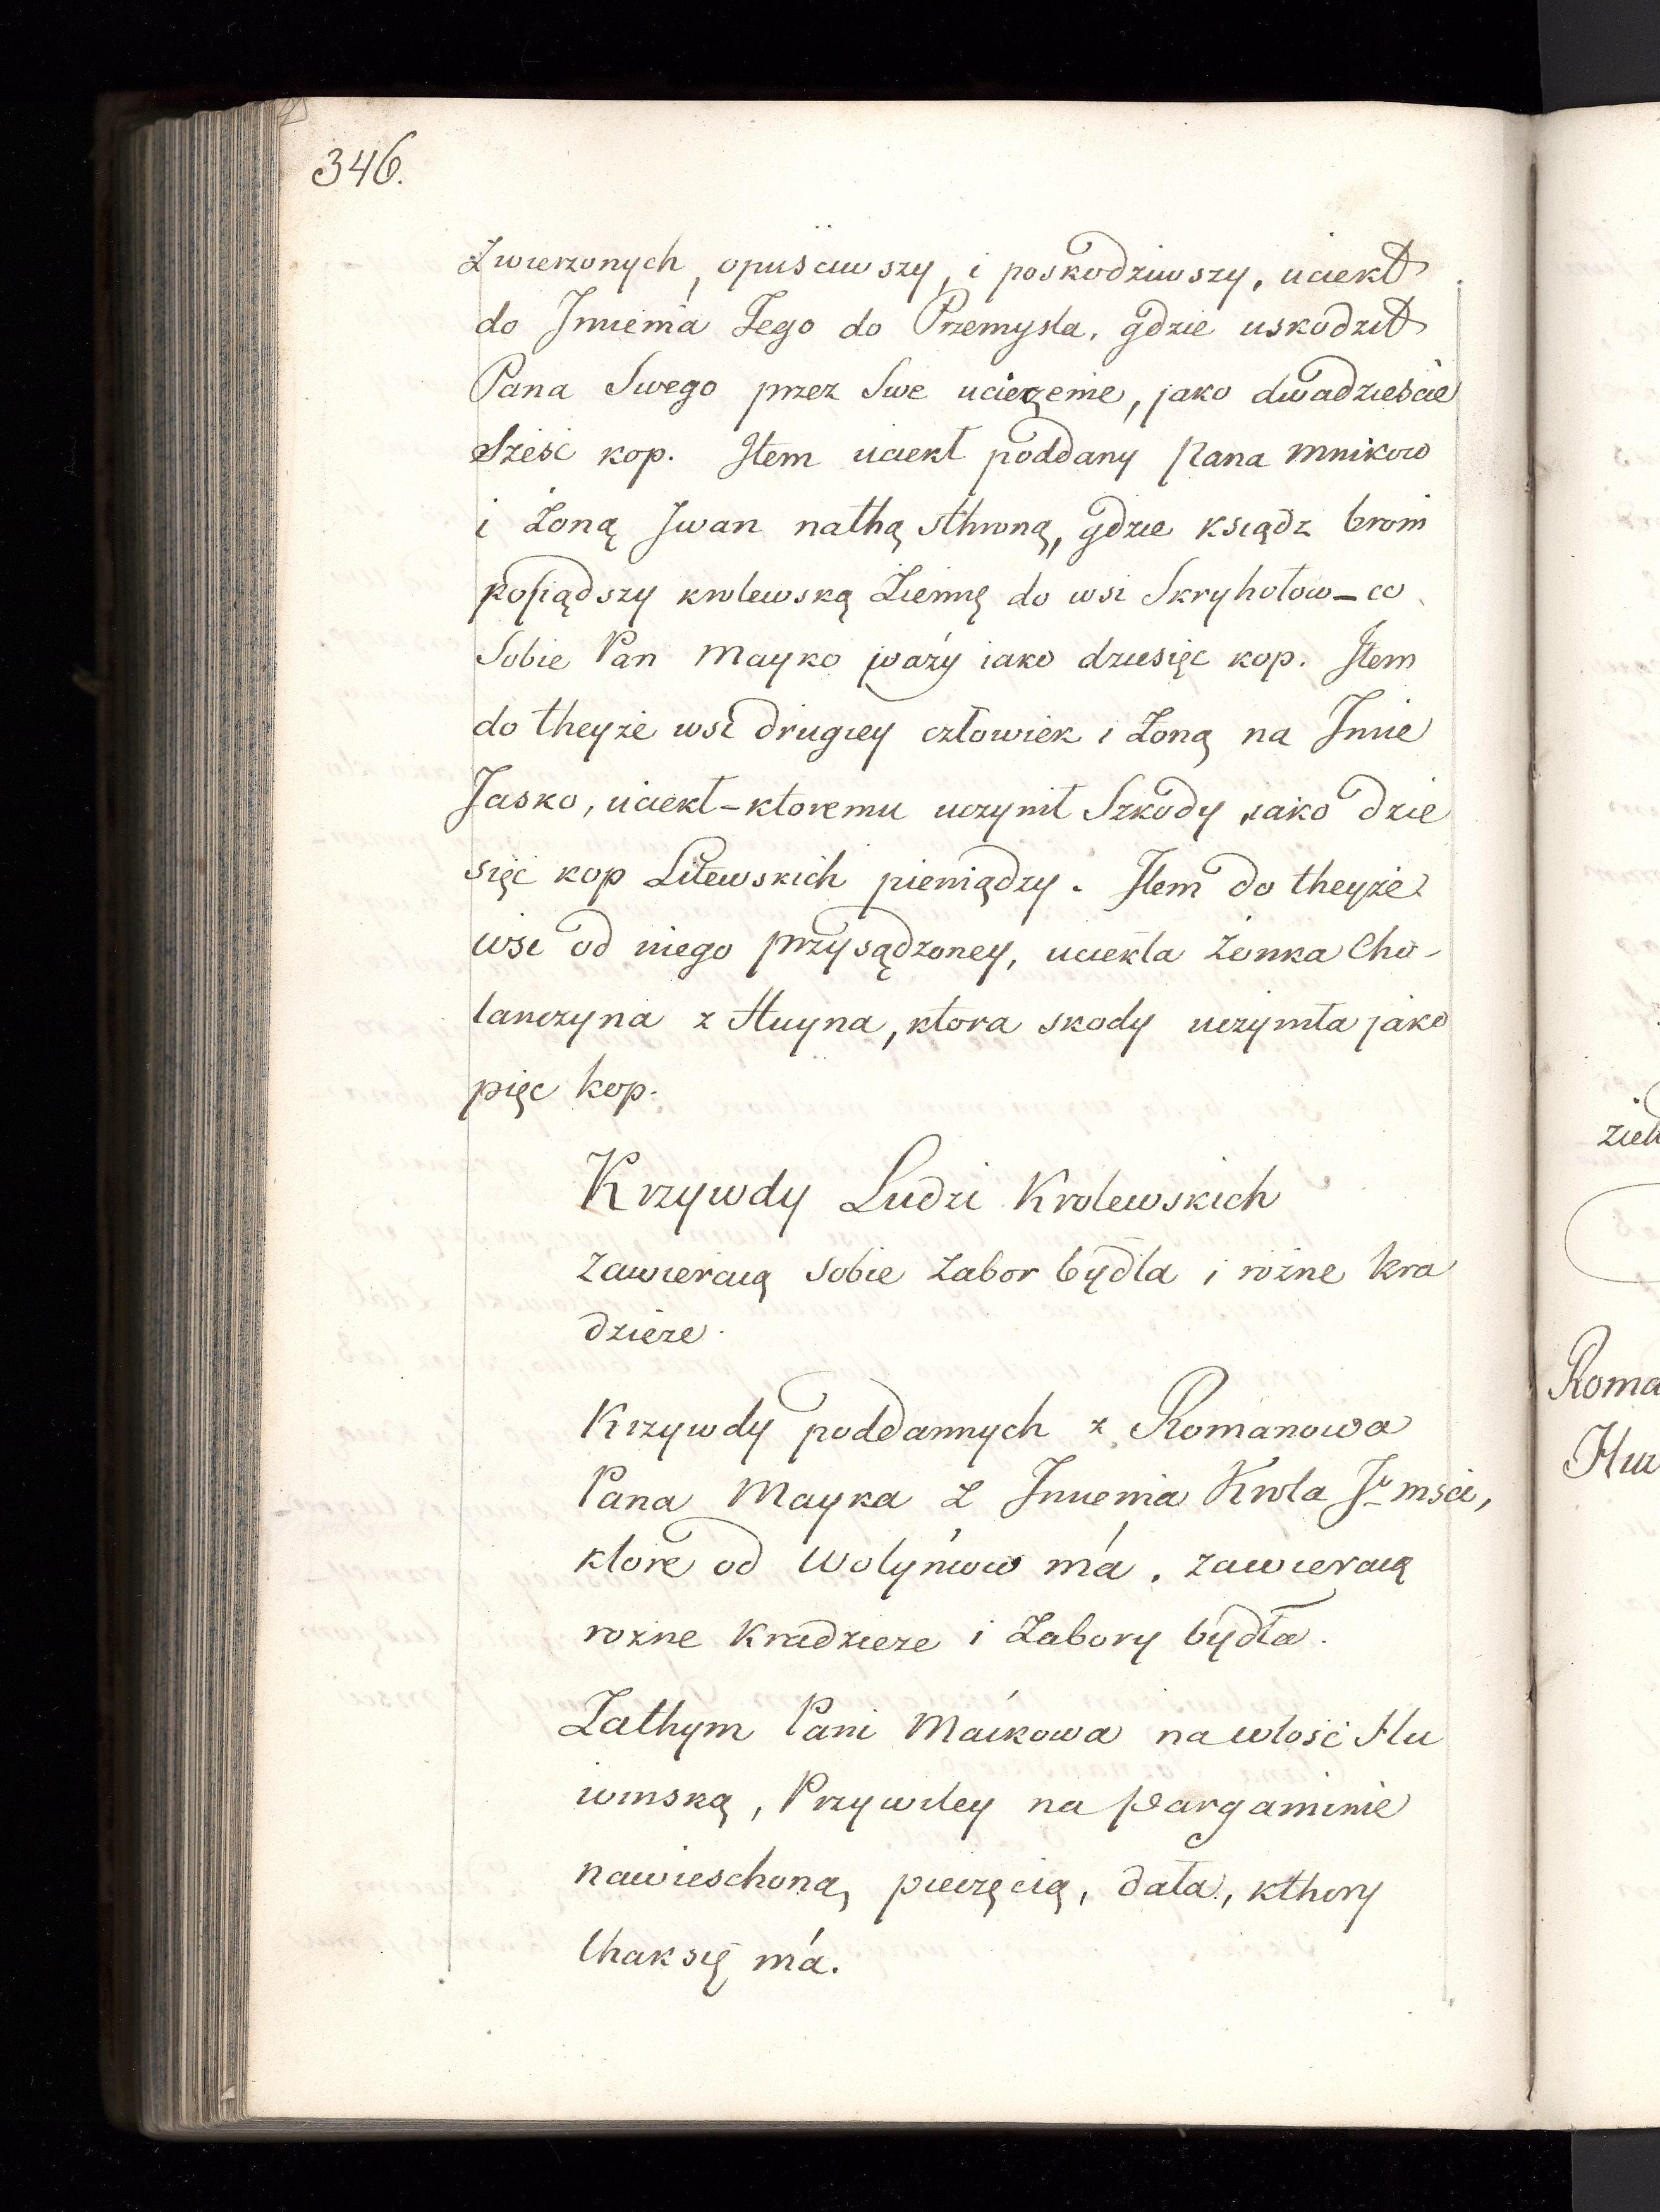 346.
Zwierzonych, opuściwszy, i poskodziwszy, uciekł
do Jmienia Tego do Przemysla, gdzie uskodził
Pana Swego przez Swe uciezenie, jako dwadziescie
Sześć kop. Jtem uciekł poddany Pana Mnikow
i Żoną Jwan nathą sthroną, gdzie ksiądz broni
posiądszy krolewską Ziemię do wsi Skryhołow_co
Sobie Pan Mayko waży iako dziesięc kop. Jtem
do theyże wsi drugiey człowiek i Żoną na Jmie
Jasko, uciekł_ktoremu uczynił Szkody iako dzie
sięc kop Litewskich pieniądzy. Jtem do theyże
wsi od niego przysądzoney, uciekła żonka Cho-
lanczyna z Huyna, ktora skody uczyniła jako
pięc kop.
Krzywdy Ludzi Krolewskich
Zawieraią Sobie Zabor bydła i rożne kra
dzieże.
Krzywdy poddannych z Romanowa
Pana Mayka z Jmienia Krola Je Msci,
ktore od Wolyńcow má, zawieraią
rożne Kradzieże i Zabory bydła.
Zathym Pani Maíkowa na włośc Hu
iwinską, Przywiley na pargaminie
nawieschoną pieczęcią, dała, kthory
thak się má.
zieh
Roma
Hui